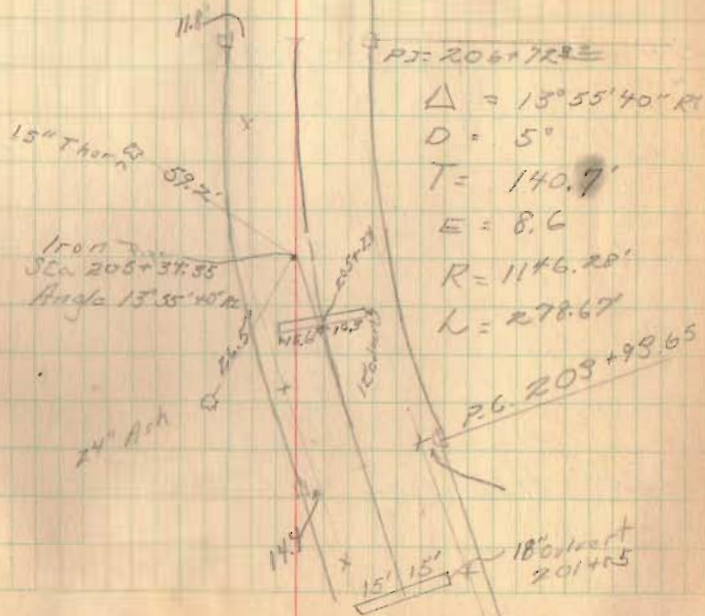 11.8'
PI= 206+72 32
Δ = 13° 55' 40" Rt
D = 5°
T = 140.7'
E = 8.6
R = 1146.28'
L = 278.67'
15" Thorn
59.2'
Iron
Sta 205+34.35
Angle 13° 55' 40" Rt
26.5'
24" Ash
P.C. 203+93.65
14.9
15' 15'
18" Culvert